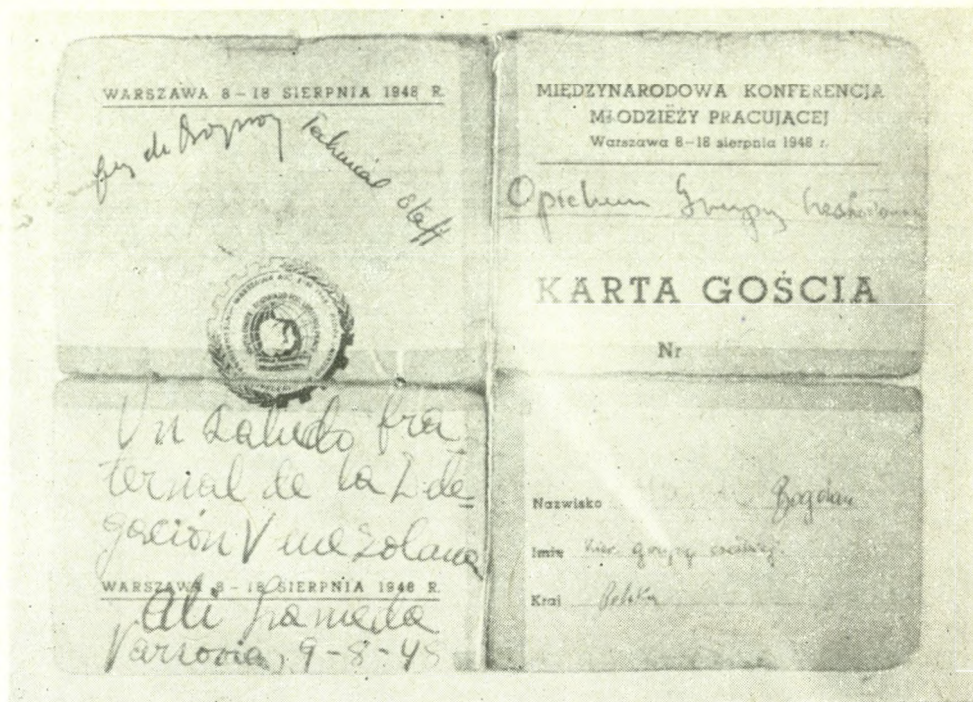 WARSZAWA 8-18 SIERPNIA 1948 R.
Technical Staff
Un saludo fra
ternal de la Dele
gación Venezolana
WARSZAWA 8-18 SIERPNIA 1948 R.
Ali Lameda
Varsovia, 9-8-48
MIĘDZYNARODOWA KONFERENCJA
MŁODZIEŻY PRACUJĄCEJ
Warszawa 8-18 sierpnia 1948 r.
Opiekun Grupy
KARTA GOŚCIA
Nr
Nazwisko Bogdan
Imię Kier. grupy
Kraj Polska